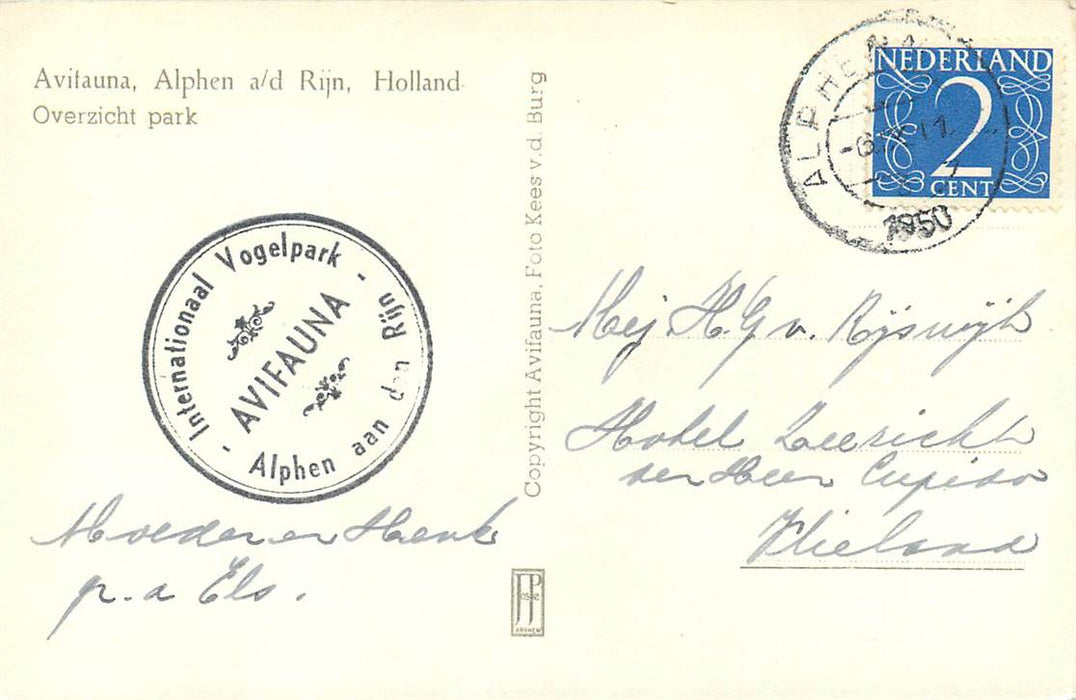 Avifauna, Alphen a/d Rijn, Holland
Overzicht park
Internationaal Vogelpark
- AVIFAUNA -
Alphen aan den Rijn
Moeder en Henk
p.a Els.
Copyright Avifauna, Foto Kees v.d. Burg
JP
ALPHEN A
1950
NEDERLAND
2
CENT
Mej H.G v. Rijswijk
Hotel Zeezicht
den Heer Cupido
Vlieland